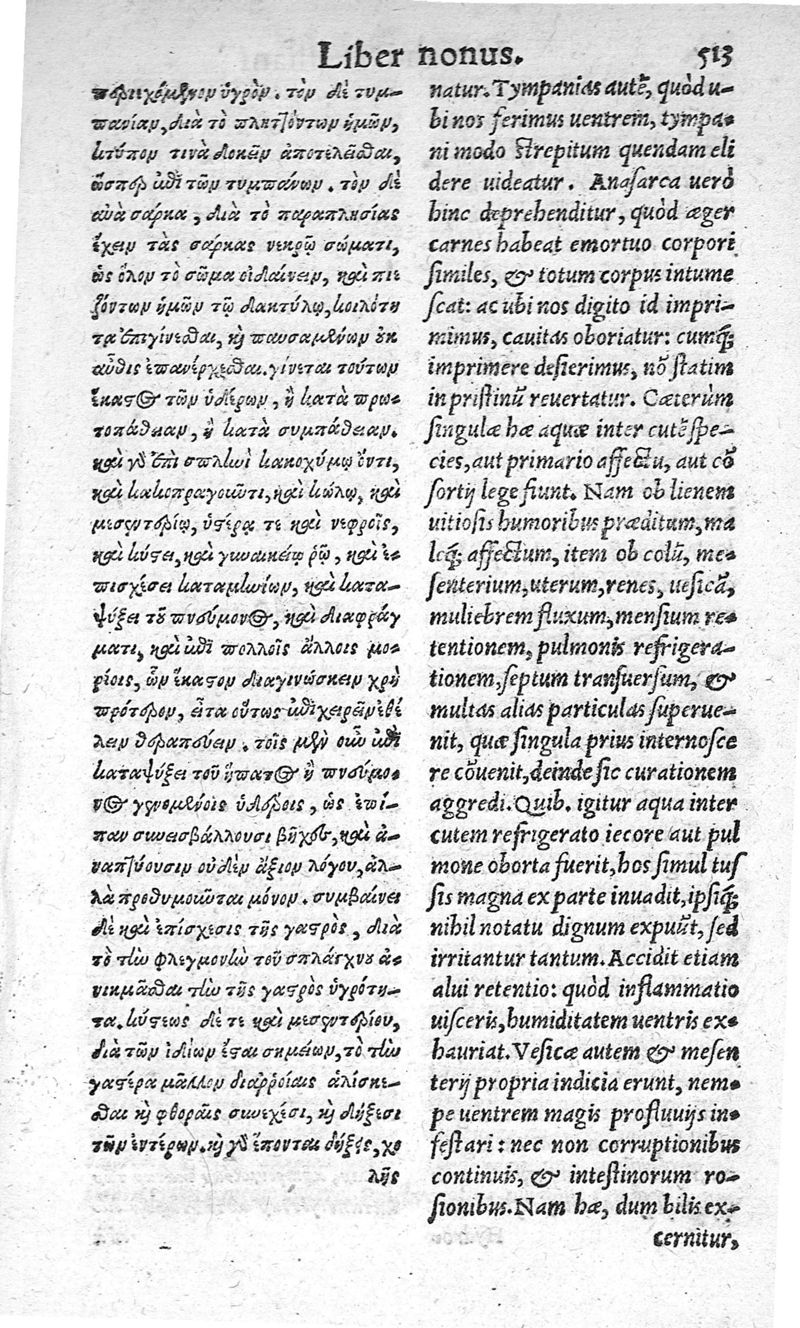 Liber nonus. 513
περιεχόμενον ὑγρὸν. τὸν δὲ τυμ-
πανίαν, διὰ τὸ πλητ]όντων ἡμῶν,
κτύπον τινὰ δοκεῖν ἀποτελεῖσθαι,
ὥσπερ ἐπὶ τῶν τυμπάνων. τὸν δὲ
ἀνὰ σάρκα, διὰ τὸ παραπλησίας
ἔχειν τὰς σάρκας νεκρῷ σώματι,
ὡς ὅλον τὸ σῶμα οἰδαίνειν, καὶ πιε
ζόντων ἡμῶν τῷ δακτύλῳ, κοιλότη
τα ἐπιγίνεσθαι, κὴ παυσαμένων οὐκ
αὖθις ἐπανέρχεσθαι. γίνεται τούτων
ἕκαστος τῶν ὑδέρων, ἢ κατὰ πρω-
τοπάθειαν, ἢ κατὰ συμπάθειαν.
καὶ γὸ ἐπὶ σπληνὶ κακοχύμῳ ὄντι,
καὶ κακοπραγοῦντι, καὶ κώλῳ, καὶ
μεσεντερίῳ, ὑστέρᾳ τε καὶ νεφροῖς,
καὶ κύστει, καὶ γυναικείῳ ῥῷ, καὶ ἐ-
πισχέσει καταμηνίων, καὶ κατα-
ψύξει τοῦ πνεύμονος, καὶ διαφράγ
ματι, καὶ ἐπὶ πολλοῖς ἄλλοις μο-
ρίοις, ὧν ἕκαστον διαγινώσκειν χρὴ
πρότερον, εἶτα οὕτως ἐπιχειρεῖν ἐθέ
λειν θεραπεύειν. τοῖς μὲν οὖν ἐπὶ
καταψύξει τοῦ ἥπατος ἢ πνεύμο-
νος γενομένοις ὑδέροις, ὡς ἐπί-
παν συνεισβάλλουσι βῆχες, καὶ ἀ-
ναπτύουσιν οὐδὲν ἄξιον λόγου, ἀλ-
λὰ προθυμοῦνται μόνον. συμβαίνει
δὲ καὶ ἐπίσχεσις τῆς γαστρὸς, διὰ
τὸ τὴν φλεγμονὴν τοῦ σπλάγχνου ἀ-
νικμᾶσθαι τὴν τῆς γαστρὸς ὑγρότη-
τα. κύστεως δὲ τε καὶ μεσεντερίου,
διὰ τῶν ἰδίων ἔσται σημείων, τὸ τὴν
γαστέρα μᾶλλον διαῤῥοίαις ἁλίσκε-
σθαι κὴ φθοραῖς συνεχέσι, κὴ δήξεσι
τῶν ἐντέρων. κὴ γὸ ἕπονται δήξεις, χο
λῆς
natur. Tympanias autẽ, quòd u-
bi nos ferimus uentrem, tympa-
ni modo strepitum quendam eli
dere uideatur. Anasarca uerò
hinc deprehenditur, quòd æger
carnes habeat emortuo corpori
similes, & totum corpus intume
scat: ac ubi nos digito id impri-
mimus, cauitas oboriatur: cumq́;
imprimere desierimus, nõ statim
in pristinũ reuertatur. Cæterùm
singulæ hæ aquæ inter cutẽ spe-
cies, aut primario affectu, aut cõ
sortij lege fiunt. Nam ob lienem
uitiosis humoribus præditum, ma
leq́; affectum, item ob colũ, me-
senterium, uterum, renes, uesicã,
muliebrem fluxum, mensium re-
tentionem, pulmonis refrigera-
tionem, septum transuersum, &
multas alias particulas superue-
nit, quæ singula prius internosce
re cõuenit, deinde sic curationem
aggredi. Quib. igitur aqua inter
cutem refrigerato iecore aut pul
mone oborta fuerit, hos simul tus
sis magna ex parte inuadit, ipsiq́;
nihil notatu dignum expuũt, sed
irritantur tantum. Accidit etiam
alui retentio: quòd inflammatio
uisceris, humiditatem uentris ex-
hauriat. Vesicæ autem & mesen
terij propria indicia erunt, nem-
pe uentrem magis profluuijs in-
festari: nec non corruptionibus
continuis, & intestinorum ro-
sionibus. Nam hæ, dum bilis ex-
cernitur,